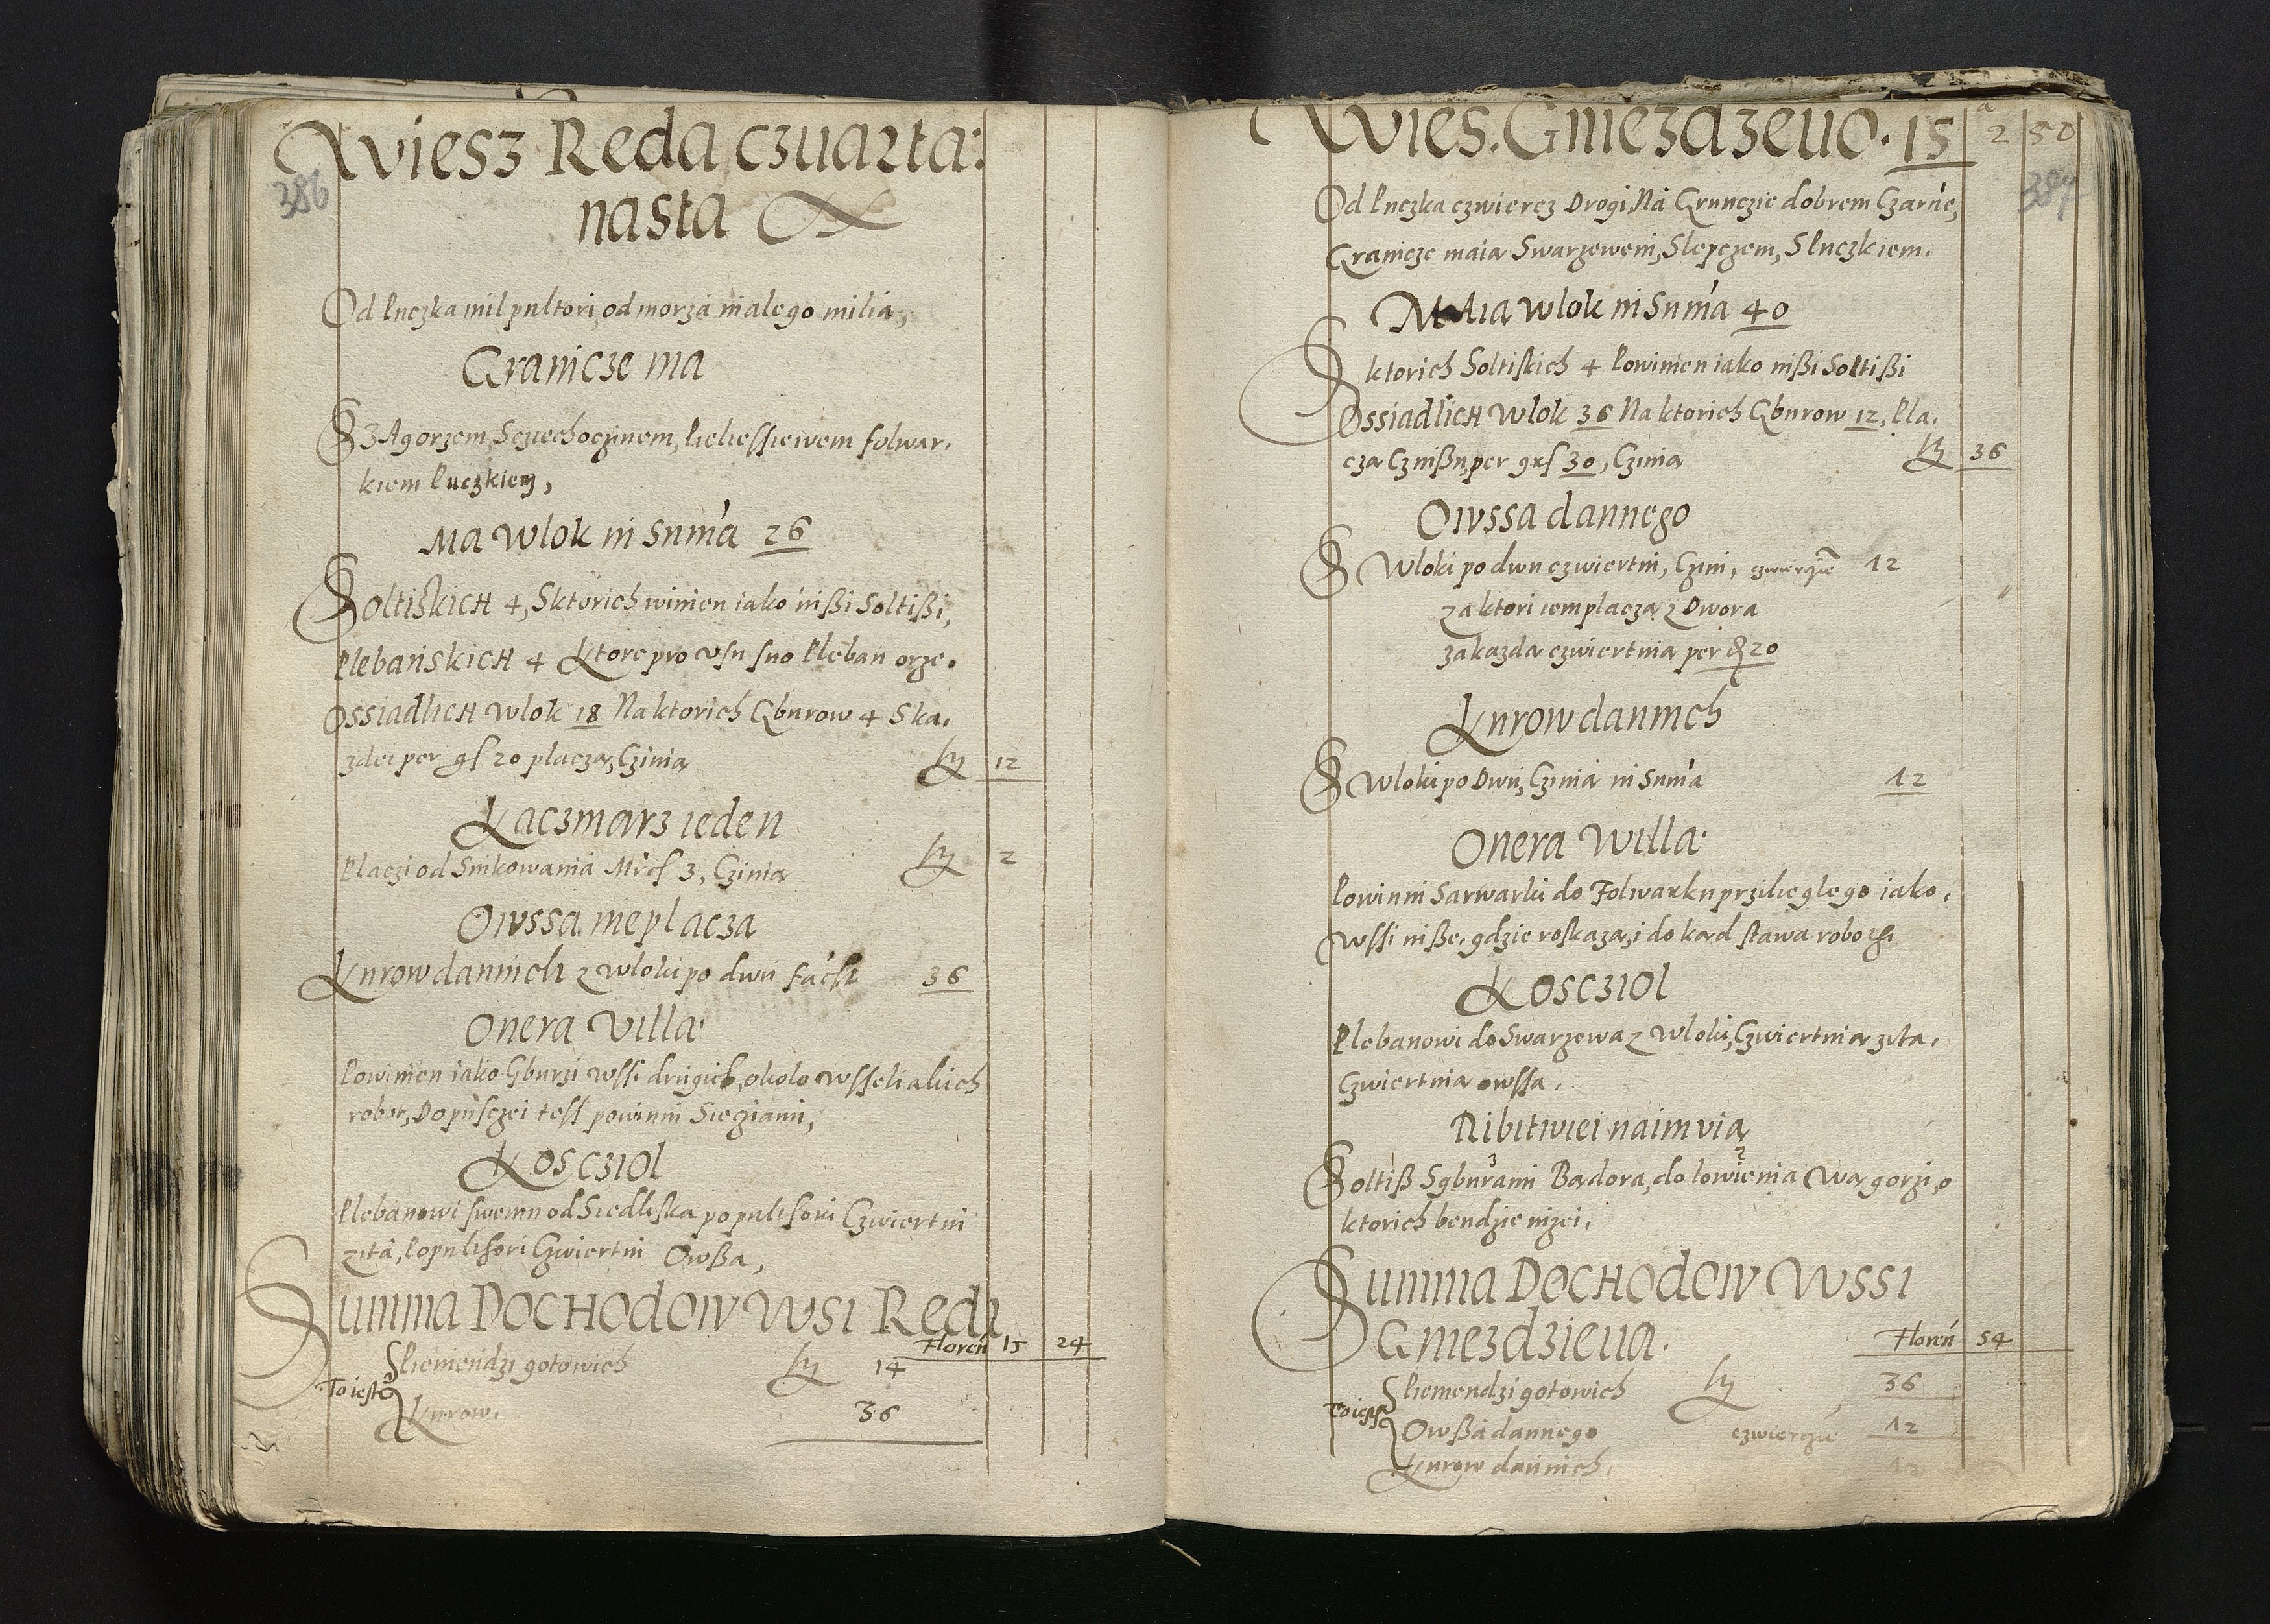 Wiesz Reda czwarta:
nasta
386
Od Puczka mil pultori, od morza malego milia,
Granicze ma
S Zagorzem, Sciechoczinem, Pieliessiewem folwar,
kiem Puczkiem,
Ma Wlok in Suma 26
Soltiskich 4, Sktorich winien iako inßi Soltißi,
Plebanskich 4 Ktore pro usu suo Pleban orze.
Ossiadlich Wlok 18 Na ktorich Gburow 4 Ska,
zdei per gs 20 placza, Czinia fl 12
Kaczmarz ieden
Placzi od Sinkowania Mrcs 3, Czinia fl 2
Owssa nie placza
Kurow dannich z wloki po dwu facit 36
Onera Villae
Powinien iako Gburzi wssi drugich, okolo wsseliakich
robot, Do pusczei tess powinni Sieziami,
Koscziol
Plebanowi swemu od Siedliska po pultsori Czwiertni
zita, Po pultsori Czwiertni Owßa,
Summa Dochodow Wsi Redi
Floren 15 24
To iest Pieniendzi gotowich fl 14
Kurow. 36
Wies. Gniezdzewo. 15
2 50
387
Od Puczka czwiercz Drogi, Na Grunczie dobrem Czarne,
Granicze maia Swarzewem, Slepczem, S Puczkiem.
Maia Wlok in Suma 40
S ktorich Soltiskich 4 Powinien iako inßi Soltißi
Ossiadlich Wlok 36 Na ktorich Gburow 12, Pla,
cza Czinßu, per grs 30, Czinia fl 36
Owssa dannego
S Wloki po dwu czwiertni, Czini, czwierznie 12
za ktori iem placza z Dwora
za kazda czwiertnia per gs 20
Kurow dannich
S Wloki po Dwu, Czinia in Suma 12
Onera Willae
Powinni Sarwarki do Folwarku przilieglego iako,
wssi inße, gdzie roskaza, i do kad stawa roboczi
Koscziol
Plebanowi do Swarzewa z Wloki, Czwiertnia zita,
Czwiertnia owssa,
Ribitwiei naimuia
Soltiß Sgburami Badora, do lowienia Wagorzi, o
ktorich bendzie nizei,
Summa Dochodow Wssi
Gniezdziewa.
Floren 54
To iest Pieniendzi gotowich fl 36
Owßa dannego czwierznie 12
Kurow dannich. 12